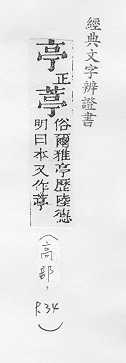 經典文字辨證書
亭正葶
俗爾雅亭歷陸德
明曰本又作葶
（高部，P.34）